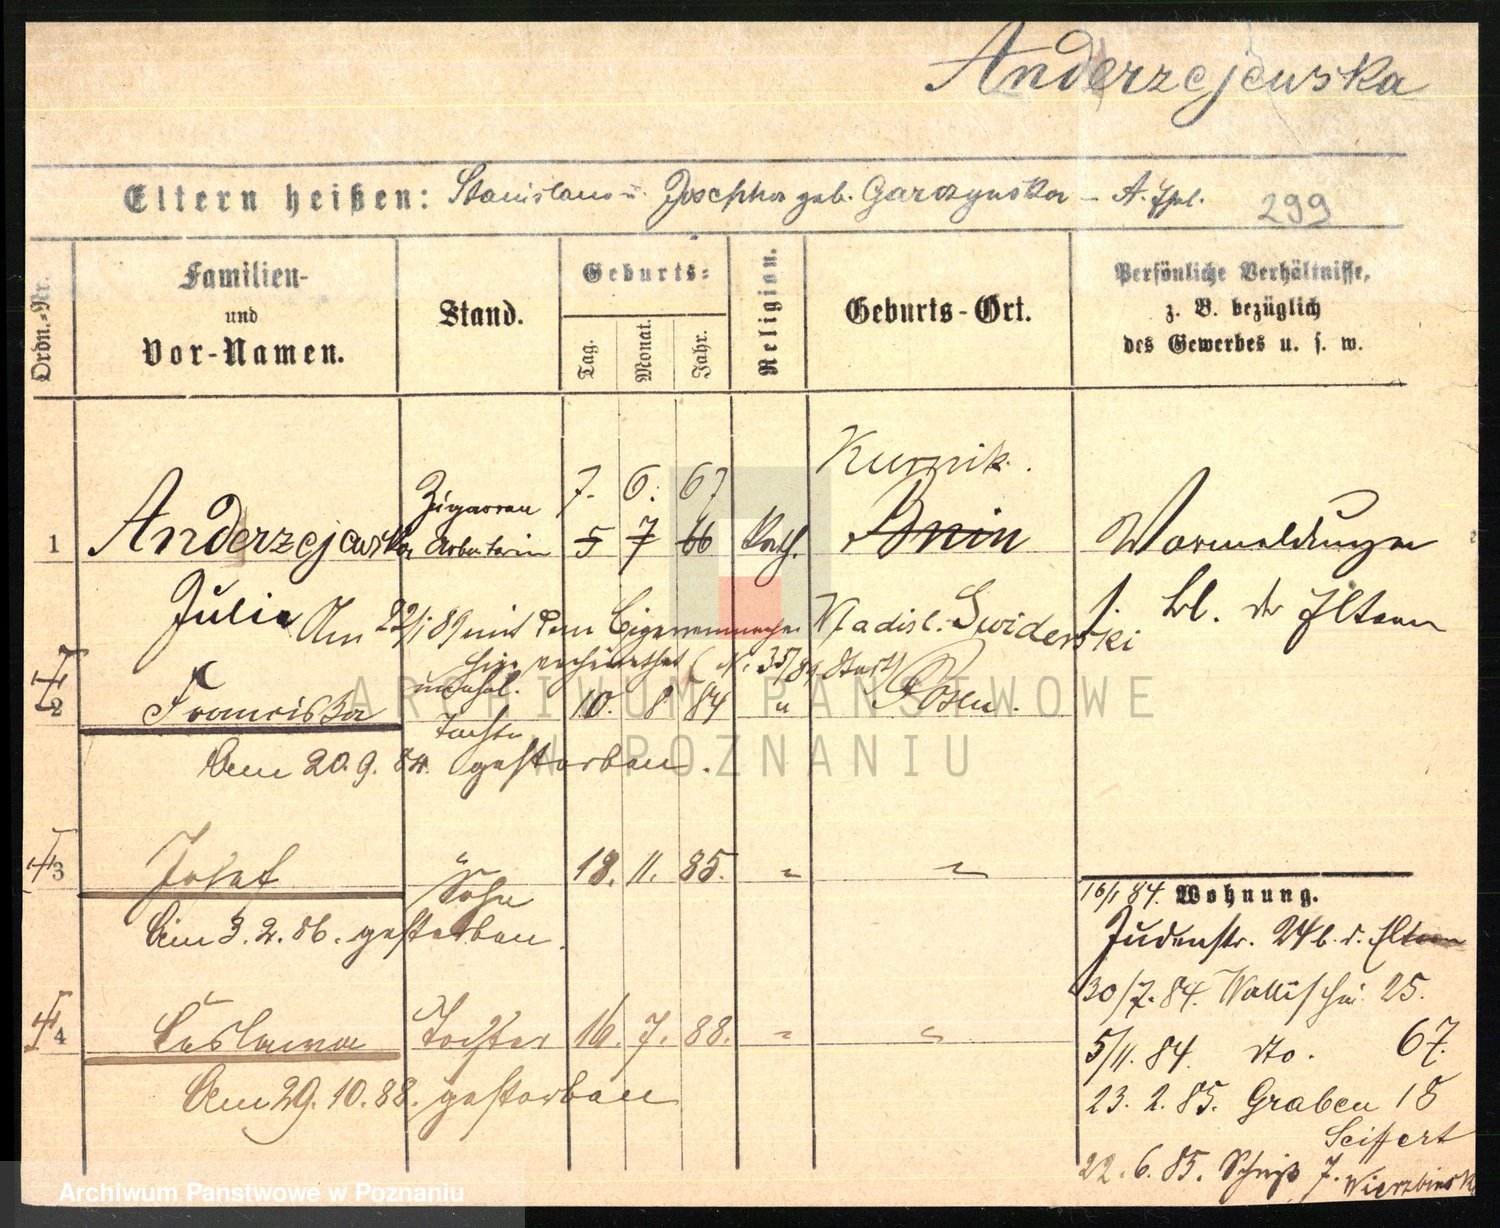 Anderzejewska
Eltern heißen: Stanislaus u. Josepha geb. Garczynska - A. Hpl. 299
Ordn.-Nr.
Familien-
und
Vor-Namen.
Stand.
Geburts=
Tag.
Monat.
Jahr.
Religion.
Geburts-Ort.
Persönliche Verhältnisse,
z. B. bezüglich
des Gewerbes u. s. w.
Kurnik.
Zigarren 7. 6. 67
1 Anderzejewska Arbeiterin 5 7 66 Kath. Bnin Vormeldungen
Julia f. bl. der Eltern
Am 22/1 89 mit dem Cigarrenmacher Vladisl. Swiderski
hier verheirathet (N. 35/89 Stast)
2 Franciska unehel. Tochter 10. 8 84 " Posen.
Am 20.9.84. gestorben.
3 Josef " Sohn 18. 11. 85. " "
Am 3.2.86. gestorben.
4 Ceslawa Tochter 16. 7. 88. " "
Am 29.10.88. gestorben
16/1 84. Wohnung.
Judenstr. 24 b. d. Eltern
30/7. 84. Wallischei 25.
5/11. 84. dto. 67.
23. 2. 85. Graben 18
Seiffert
22. 6. 85. 7. Wierzbinski
ARCHIWUM PAŃSTWOWE
W POZNANIU
Archiwum Państwowe w Poznaniu